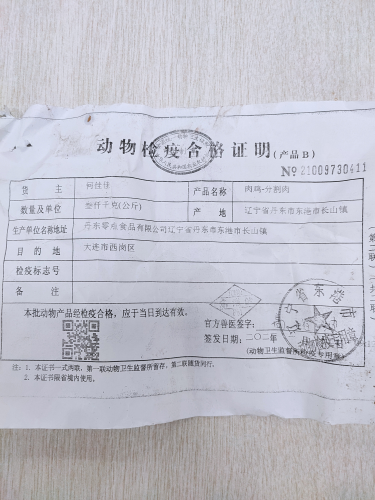 动物检疫合格证明(产品B)
№ 21009730411
货 主 何佳佳 产品名称 肉鸡-分割肉
数量及单位 叁仟千克(公斤) 产 地 辽宁省丹东市东港市长山镇
生产单位名称地址 丹东零点食品有限公司辽宁省丹东市东港市长山镇
目 的 地 大连市西岗区
检疫标志号
备 注
本批动物产品经检疫合格，应于当日到达有效。
官方兽医签字：
签发日期：二〇二
(动物卫生监督所检疫专用章)
辽宁省东港市
注：1．本证书一式两联，第一联动物卫生监督所留存，第二联随货同行。
2．本证书限省境内使用。